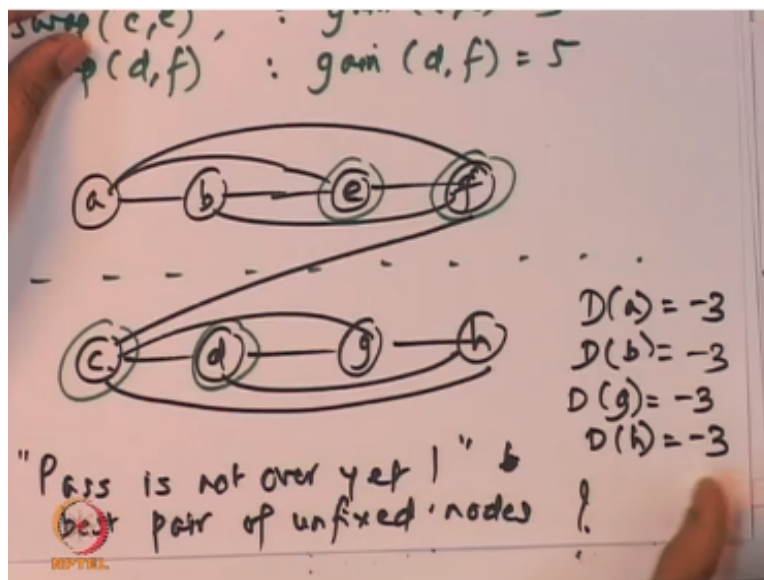 swap(c,e), : gain
p(d,f) : gain (d,f) = 5
a b e f
c d g h
D(a) = -3
D(b) = -3
D(g) = -3
D(h) = -3
"Pass is not over yet!"
best pair of unfixed nodes
NPTEL